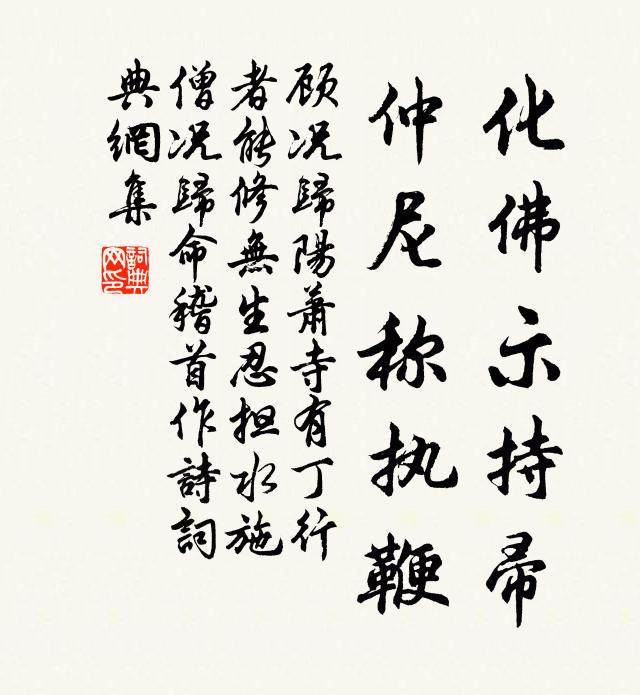 化佛示持帚
仲尼称执鞭
顾况歸陽蕭寺有丁行
者能修無生忍担水施
僧况歸命稽首作詩詞
典網集
詞典
网印